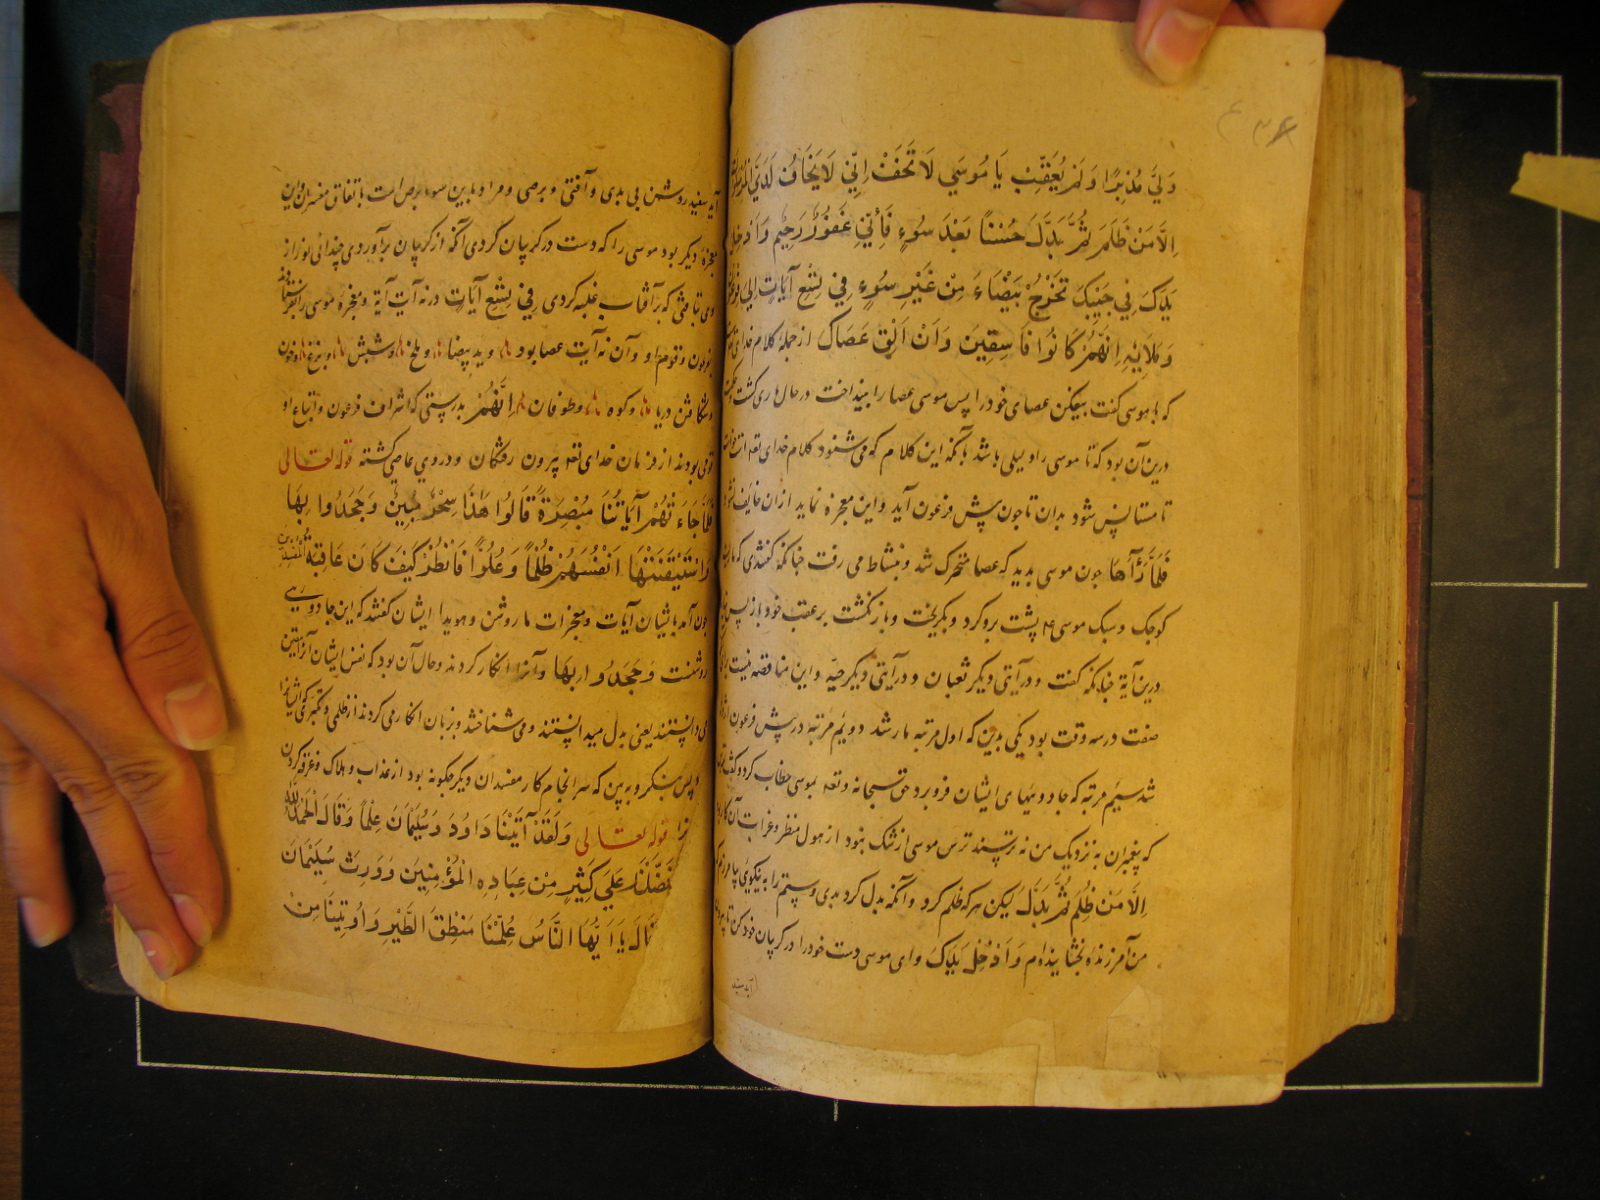 وَلّٰي مُدْبِرًا وَلَمْ يُعَقِّبْ يَا مُوسَي لَا تَخَفْ اِنِّي لَا يَخَافُ لَدَيَّ الْمُرْسَلُونَ
اِلَّا مَنْ ظَلَمَ ثُمَّ بَدَّلَ حُسْنًا بَعْدَ سُوءٍ فَاِنِّي غَفُورٌ رَحِيمٌ وَاَدْخِلْ
يَدَكَ فِي جَيْبِكَ تَخْرُجْ بَيْضَاءَ مِنْ غَيْرِ سُوءٍ فِي تِسْعِ آيَاتٍ اِلَي فِرْعَوْنَ
وَقَوْمِهِ اِنَّهُمْ كَانُوا فَاسِقِينَ وَاَنْ اَلْقِ عَصَاكَ از جملهٔ كلام خدای
كه با موسی گفت بیفكن عصای خود را پس موسی عصا را بینداخت در حال ماری گشت
درین آن بود كه تا موسی را دلیلی باشد بآنكه این كلام كه می شنود كلام خدای تعه است
تا مستانس شود بدان تا چون پیش فرعون آید و این معجزه نماید از آن خایف نشود
فَلَمَّا رَآهَا چون موسی بدید كه عصا متحرك شد و بنشاط می رفت چنانكه
كوچك و سبك موسی ع م پشت برو كرد و بگریخت و باز نگشت بر عقب خود باز پس
درین آیة چنانكه گفت و در آیتی دیگر ثعبان و در آیتی دیگر حیّه و این مناقضه نیست
صفت در سه وقت بود یكی بدین كه اول مرتبه مار شد دویم مرتبه در پیش فرعون
شد سیم مرتبه كه جادویهای ایشان فرو برد حق سبحانه وتعه بموسی خطاب كرد و گفت
كه پیغمبران به نزدیك من نه ترسند ترس موسی از شك نبود از هول منظر و غرابت آن كار
اِلَّا مَنْ ظَلَمَ ثُمَّ بَدَّلَ لیكن هر كه ظلم كرد و آنگه بدل كرد بدی و ستم را به نیكویی
من آمرزنده بخشاینده ام وَاَدْخِلْ يَدَكَ و ای موسی دست خود را در گریبان خود كن تا
آید سفید
آید سفید روشن بی بدی و آفتی و برصی و مراد باین سوء برص است باتفاق مفسران و این
معجزه دیگر بود موسی را كه دست در گریبان كردی آنگه از گریبان برآوردی چندانی نور از
وی تافتی كه بر آفتاب غلبه كردی فِي تِسْعِ آيَاتٍ در نه آیت آیة و معجزهٔ موسی
بفرعون و قوم او و آن نه آیت عصا بود و ید بیضا و ملخ و شپش و بزغ و خون
و شكافتن دریا و كوه و طوفان اِنَّهُمْ بدرستی كه اشراف فرعون و اتباع او
قومی بودند از فرمان خدای تعه بیرون رفتگان و در وی عاصی گشته قوله تعالی
فَلَمَّا جَاءَتْهُمْ آيَاتُنَا مُبْصِرَةً قَالُوا هٰذَا سِحْرٌ مُبِينٌ وَجَحَدُوا بِهَا
وَاسْتَيْقَنَتْهَا اَنْفُسُهُمْ ظُلْمًا وَعُلُوًّا فَانْظُرْ كَيْفَ كَانَ عَاقِبَةُ الْمُفْسِدِينَ
چون آمد بایشان آیات و معجزات ما روشن و هویدا ایشان گفتند كه این جادویی
روشنست وَجَحَدُوا بِهَا و آنرا انكار كردند و حال آن بود كه نفس ایشان آنرا بیقین
می دانستند یعنی بدل میدانستند و می شناختند و بزبان انكار می كردند از ظلمی و تكبری كه
پس بنگر و ببین كه سرانجام كار مفسدان دیگر چگونه بود از عذاب و هلاك و غرقه كردن
قوله تعالی وَلَقَدْ آتَيْنَا دَاوُدَ وَسُلَيْمَانَ عِلْمًا وَقَالَا الْحَمْدُ لِلّٰهِ
فَضَّلَنَا عَلَي كَثِيرٍ مِنْ عِبَادِهِ الْمُؤْمِنِينَ وَوَرِثَ سُلَيْمَانَ
قَالَ يَا اَيُّهَا النَّاسُ عُلِّمْنَا مَنْطِقَ الطَّيْرِ وَاُوتِينَا مِنْ